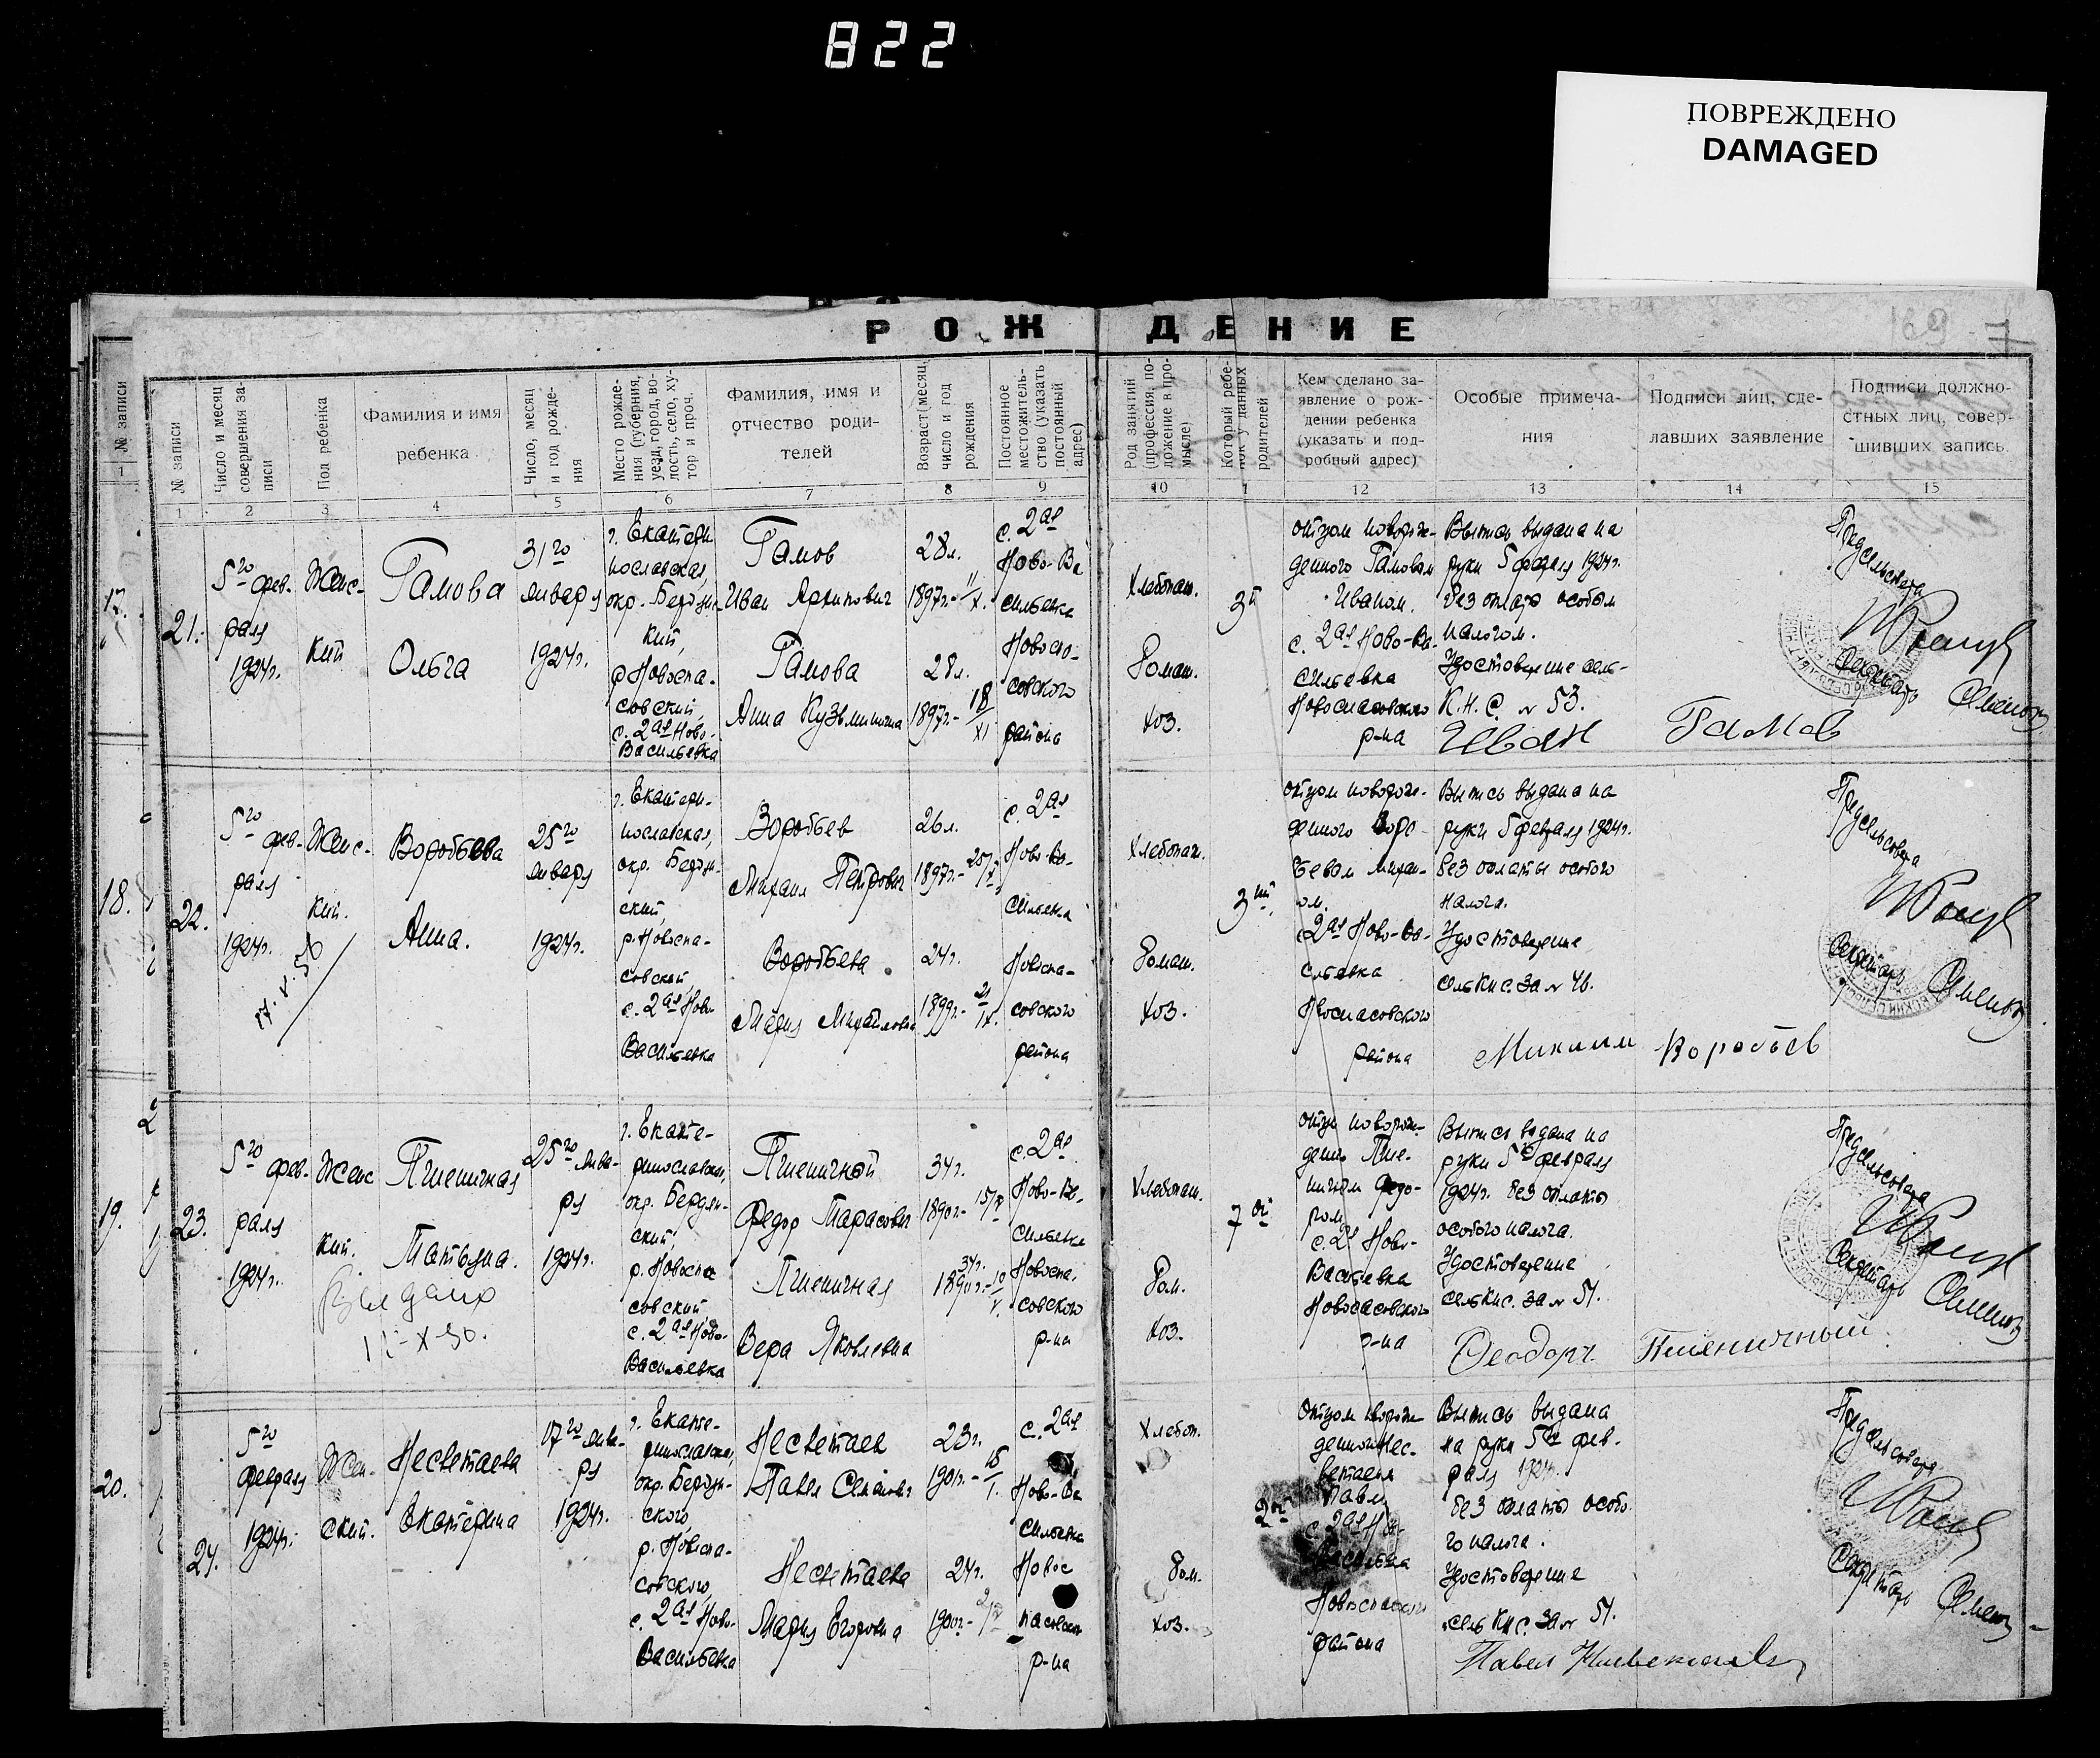 822
ПОВРЕЖДЕНО
DAMAGED
РОЖДЕНИЕ
№ записи
1
№ записи
Число и месяц совершения записи
Пол ребенка
Фамилия и имя
ребенка
Число, месяц и год рождения
Место рождения (губерния, уезд, город, волость, село, хутор и проч.
Фамилия, имя и
отчество роди-
телей
Возраст (месяц, число и год рождения
Постоянное местожительство (указать постоянный адрес)
Род занятий (профессия, положение в промысле)
Который ребенок у данных родителей
Кем сделано за-
явление о рож-
дении ребенка
(указать и под-
робный адрес)
Особые примеча-
ния
Подписи лиц, сде-
лавших заявление
Подписи должно-
стных лиц, совер-
шивших запись.
1 2 3 4 5 6 7 8 9 10 1 12 13 14 15
17.
18.
19.
20.
21.
5го фев-
раля
1924г.
Женс-
кий
Гамова
Ольга
31го
января
1924г.
г. Екатери
нославская,
окр. Бердянс
кий,
р. Новоспа-
совский,
с. 2ая Ново-
Васильевка
Гамов
Иван Архипович
Гамова
Анна Кузьминична
28л.
1897г. 11/X.
28л.
1897г.- 18/XI
с. 2ая
Ново-Ва
сильевка
Новоспа-
совского
района
Хлебопаш.
Домаш.
хоз.
3й
отцом новорож-
денного Гамовым
Иваном.
с. 2ая Ново-Ва-
сильевка
Новоспасовского
р-на
Выпись выдана на
руки 5 февраля 1924г.
без оплаты особым
налогом.
Удостоверение сель-
К.Н.С. № 53.
Иван Гамов
Предсельсовета
Секретарь
22.
5го фев-
раля
1924г.
Женс-
кий.
Воробьева
Анна.
25го
января
1924г.
г. Екатери-
нославская,
окр. Бердян-
ский,
р. Новоспа-
совский
с. 2ая Ново-
Васильевка
Воробьев
Михаил Петрович
Воробьева
Мария Михайловна
26л.
1897г.-
24г.
1899г.- 21/IX.
с. 2ая
Ново-Ва-
сильевка
Новоспа-
совского
района
Хлебопаш.
Домаш.
хоз.
3ий.
отцом новорож-
денного Воро-
бьевым Михаи-
ом.
с 2ая Ново-Ва-
сильевка
Новоспасовского
района
Выпись выдана на
руки 5 февраля 1924г.
без оплаты особого
налога.
Удостоверение
сельКнс. за № 46.
Михаил Воробьев
Предсельсовета
Секретарь
23.
5го фев-
раля
1924г.
Женс
кий.
Выдано
Пшеничная
Татьяна.
25го янва-
ря
1924г.
г. Екате-
ринославская,
окр. Бердян-
ский
р. Новоспа
совский
с. 2ая Ново-
Васильевка
Пшеничной
Федор Тарасович
Пшеничная
Вера Яковлевна
34г.
1890г.- 15/II
34г.
1890г.-
с. 2ая
Ново-Ва-
сильевка
Новоспа-
совского
р-на
Хлебопаш.
Дом.
хоз.
7ой
отцом новорож-
денн. Пше-
ничным Федо-
ром
с. 2ая Ново-
Васильевка
Новоспасовского
р-на
Выпись выдана на
руки 5го февраля
1924г. без оплаты
особого налога.
Удостоверение
сельКнс. за № 51.
Феодор Пшеничный
Предсельсовета
Секретарь
24.
5го
февраля
1924г.
Жен-
ский.
Несветаева
Екатерина
17го янва-
ря
1924г.
г. Екате-
ринославская,
окр. Бердян-
ского
р. Новоспа-
совского,
с. 2ая Ново-
Васильевка
Несветаев
Павел Семенович
Несветаева
Мария Егоровна
23г.
1901г.- 15/I.
24г.
1900г.-
с. 2ая
Ново-Ва
сильевка
Новос
пасовского
р-на
Хлебоп.
Дом.
хоз.
2ой
Отцом новорож-
денной Нес-
ветаевым
Павлом
с 2ая Но-
Васильевка
Новоспасовского
района
Выпись выдана
на руки 5го фев-
раля 1924г.
без оплаты особо-
го налога.
Удостоверение
сельКнс. за № 54.
Павел Несветаев
Предсельсовета
Секретарь